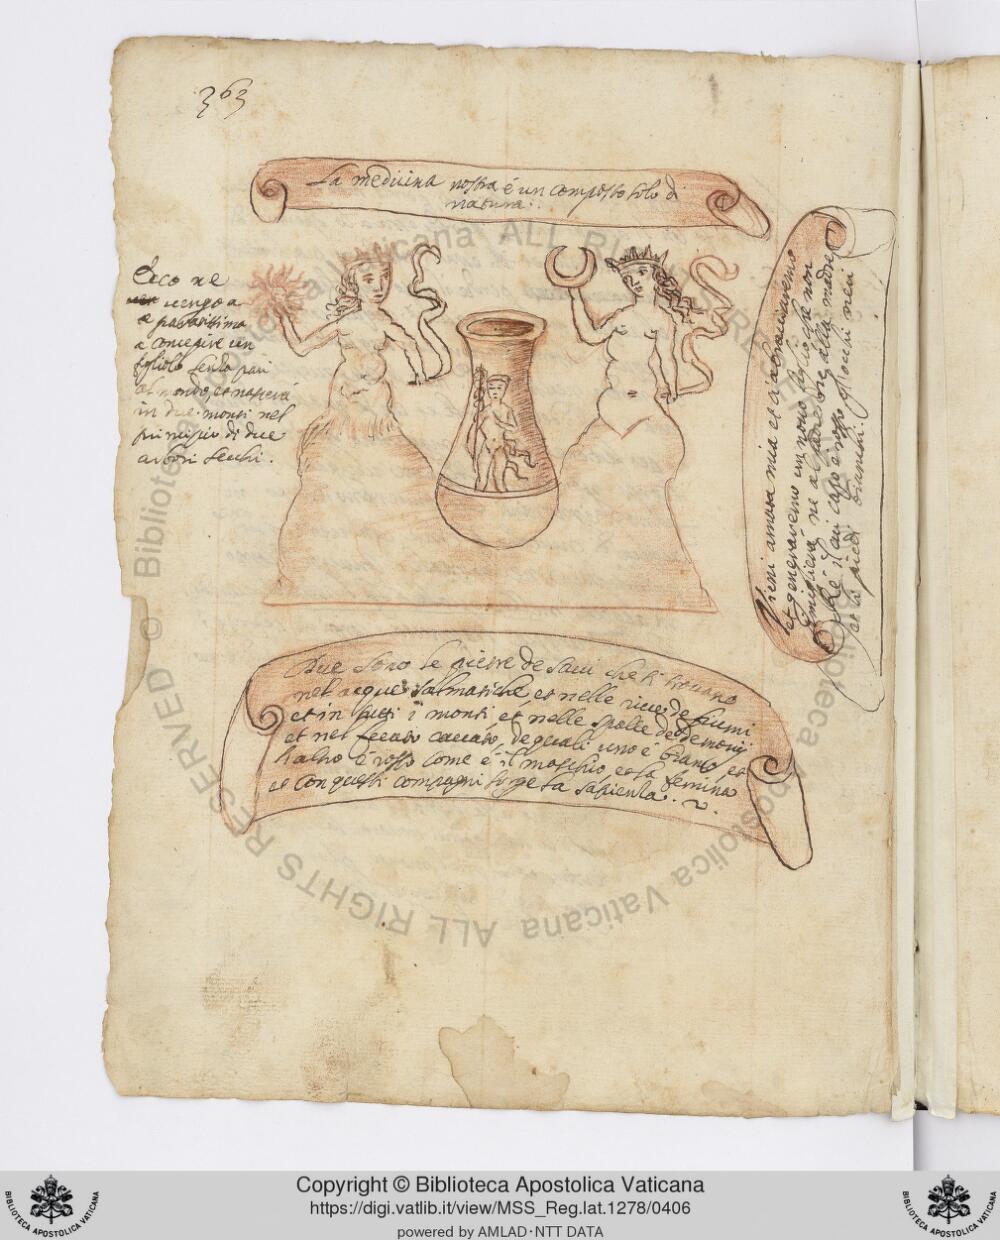 363
La medicina nostra è un composto solo di
natura.
Ecco ne
vengo a
a
a concepire un
figliolo senza pari
al mondo, et nascerà
in due monti nel
principio di due
arbori secchi.
Vieni amata mia et ci abbracciaremo
et generaremo un novo figlio che non
ne al padre ne alla madre
il suo capo è rosso gl'occhi neri
et li piedi bianchi.
Due sono le pietre de savi che si trovano
nel acque salmatiche, et nelle rive de fiumi
et in tutti i monti et nelle spalle de demonij
et nel fecato cavato, de quali uno è biano, et
l'altro è rosso come è il maschio, et la femina
et con questi compagni sorge la sapienza.
Biblioteca Apostolica Vaticana ALL RIGHTS RESERVED ©
Copyright © Biblioteca Apostolica Vaticana
https://digi.vatlib.it/view/MSS_Reg.lat.1278/0406
powered by AMLAD·NTT DATA
BIBLIOTECA APOSTOLICA VATICANA
BIBLIOTECA APOSTOLICA VATICANA